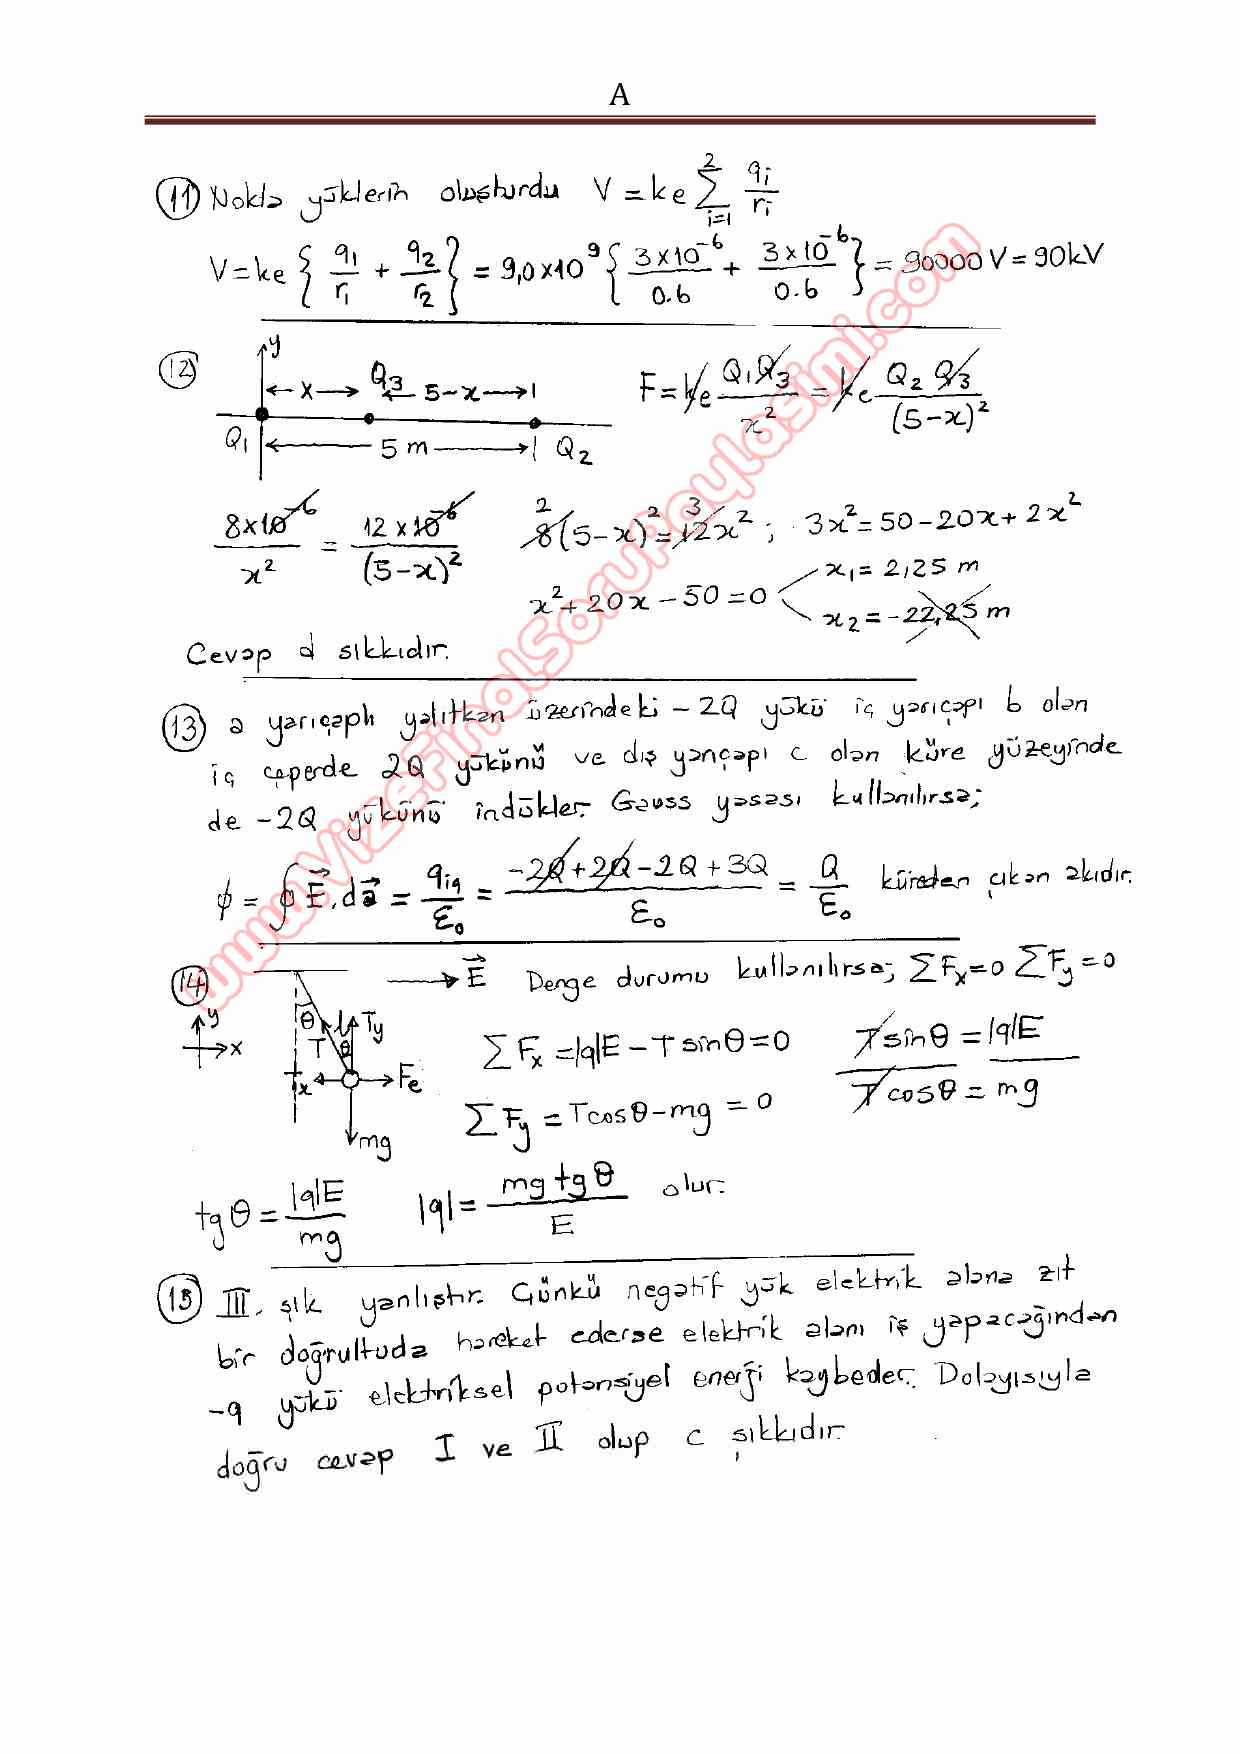 A
11 Nokta yüklerin oluşturdu V = ke Σ_{i=1}^{2} qi/ri
V = ke { q1/r1 + q2/r2 } = 9,0x10^9 { 3x10^-6/0.6 + 3x10^-6/0.6 } = 90000 V = 90kV
12 y
← x → Q3 ← 5-x →
F = ke Q1Q3/x^2 = ke Q2Q3/(5-x)^2
Q1 ← 5 m → Q2
8x10^-6/x^2 = 12x10^-6/(5-x)^2 2 8(5-x)^2 = 3 12x^2 ; 3x^2 = 50-20x+2x^2
x^2+20x-50=0
x1 = 2,25 m
x2 = -22,25 m
Cevap d şıkkıdır.
13 a yarıçaplı yalıtkan üzerindeki -2Q yükü iç yarıçapı b olan
iç çeperde 2Q yükünü ve dış yarıçapı c olan küre yüzeyinde
de -2Q yükünü indükler. Gauss yasası kullanılırsa;
ϕ = ∮ E.da = qiç/ε0 = (-2Q+2Q-2Q+3Q)/ε0 = Q/ε0 küreden çıkan akıdır.
14 → E Denge durumu kullanılırsa; ΣFx=0 ΣFy=0
y x θ T θ Ty Tx Fe mg
ΣFx = |q|E - T sinθ = 0
T sinθ = |q|E
ΣFy = T cosθ - mg = 0
T cosθ = mg
tgθ = |q|E/mg |q| = mg tgθ/E olur.
15 III. şık yanlıştır. Çünkü negatif yük elektrik alana zıt
bir doğrultuda hareket ederse elektrik alanı iş yapacağından
-q yükü elektriksel potansiyel enerji kaybeder. Dolayısıyla
doğru cevap I ve II olup c şıkkıdır.
www.VizeFinalSoruPaylasimi.com